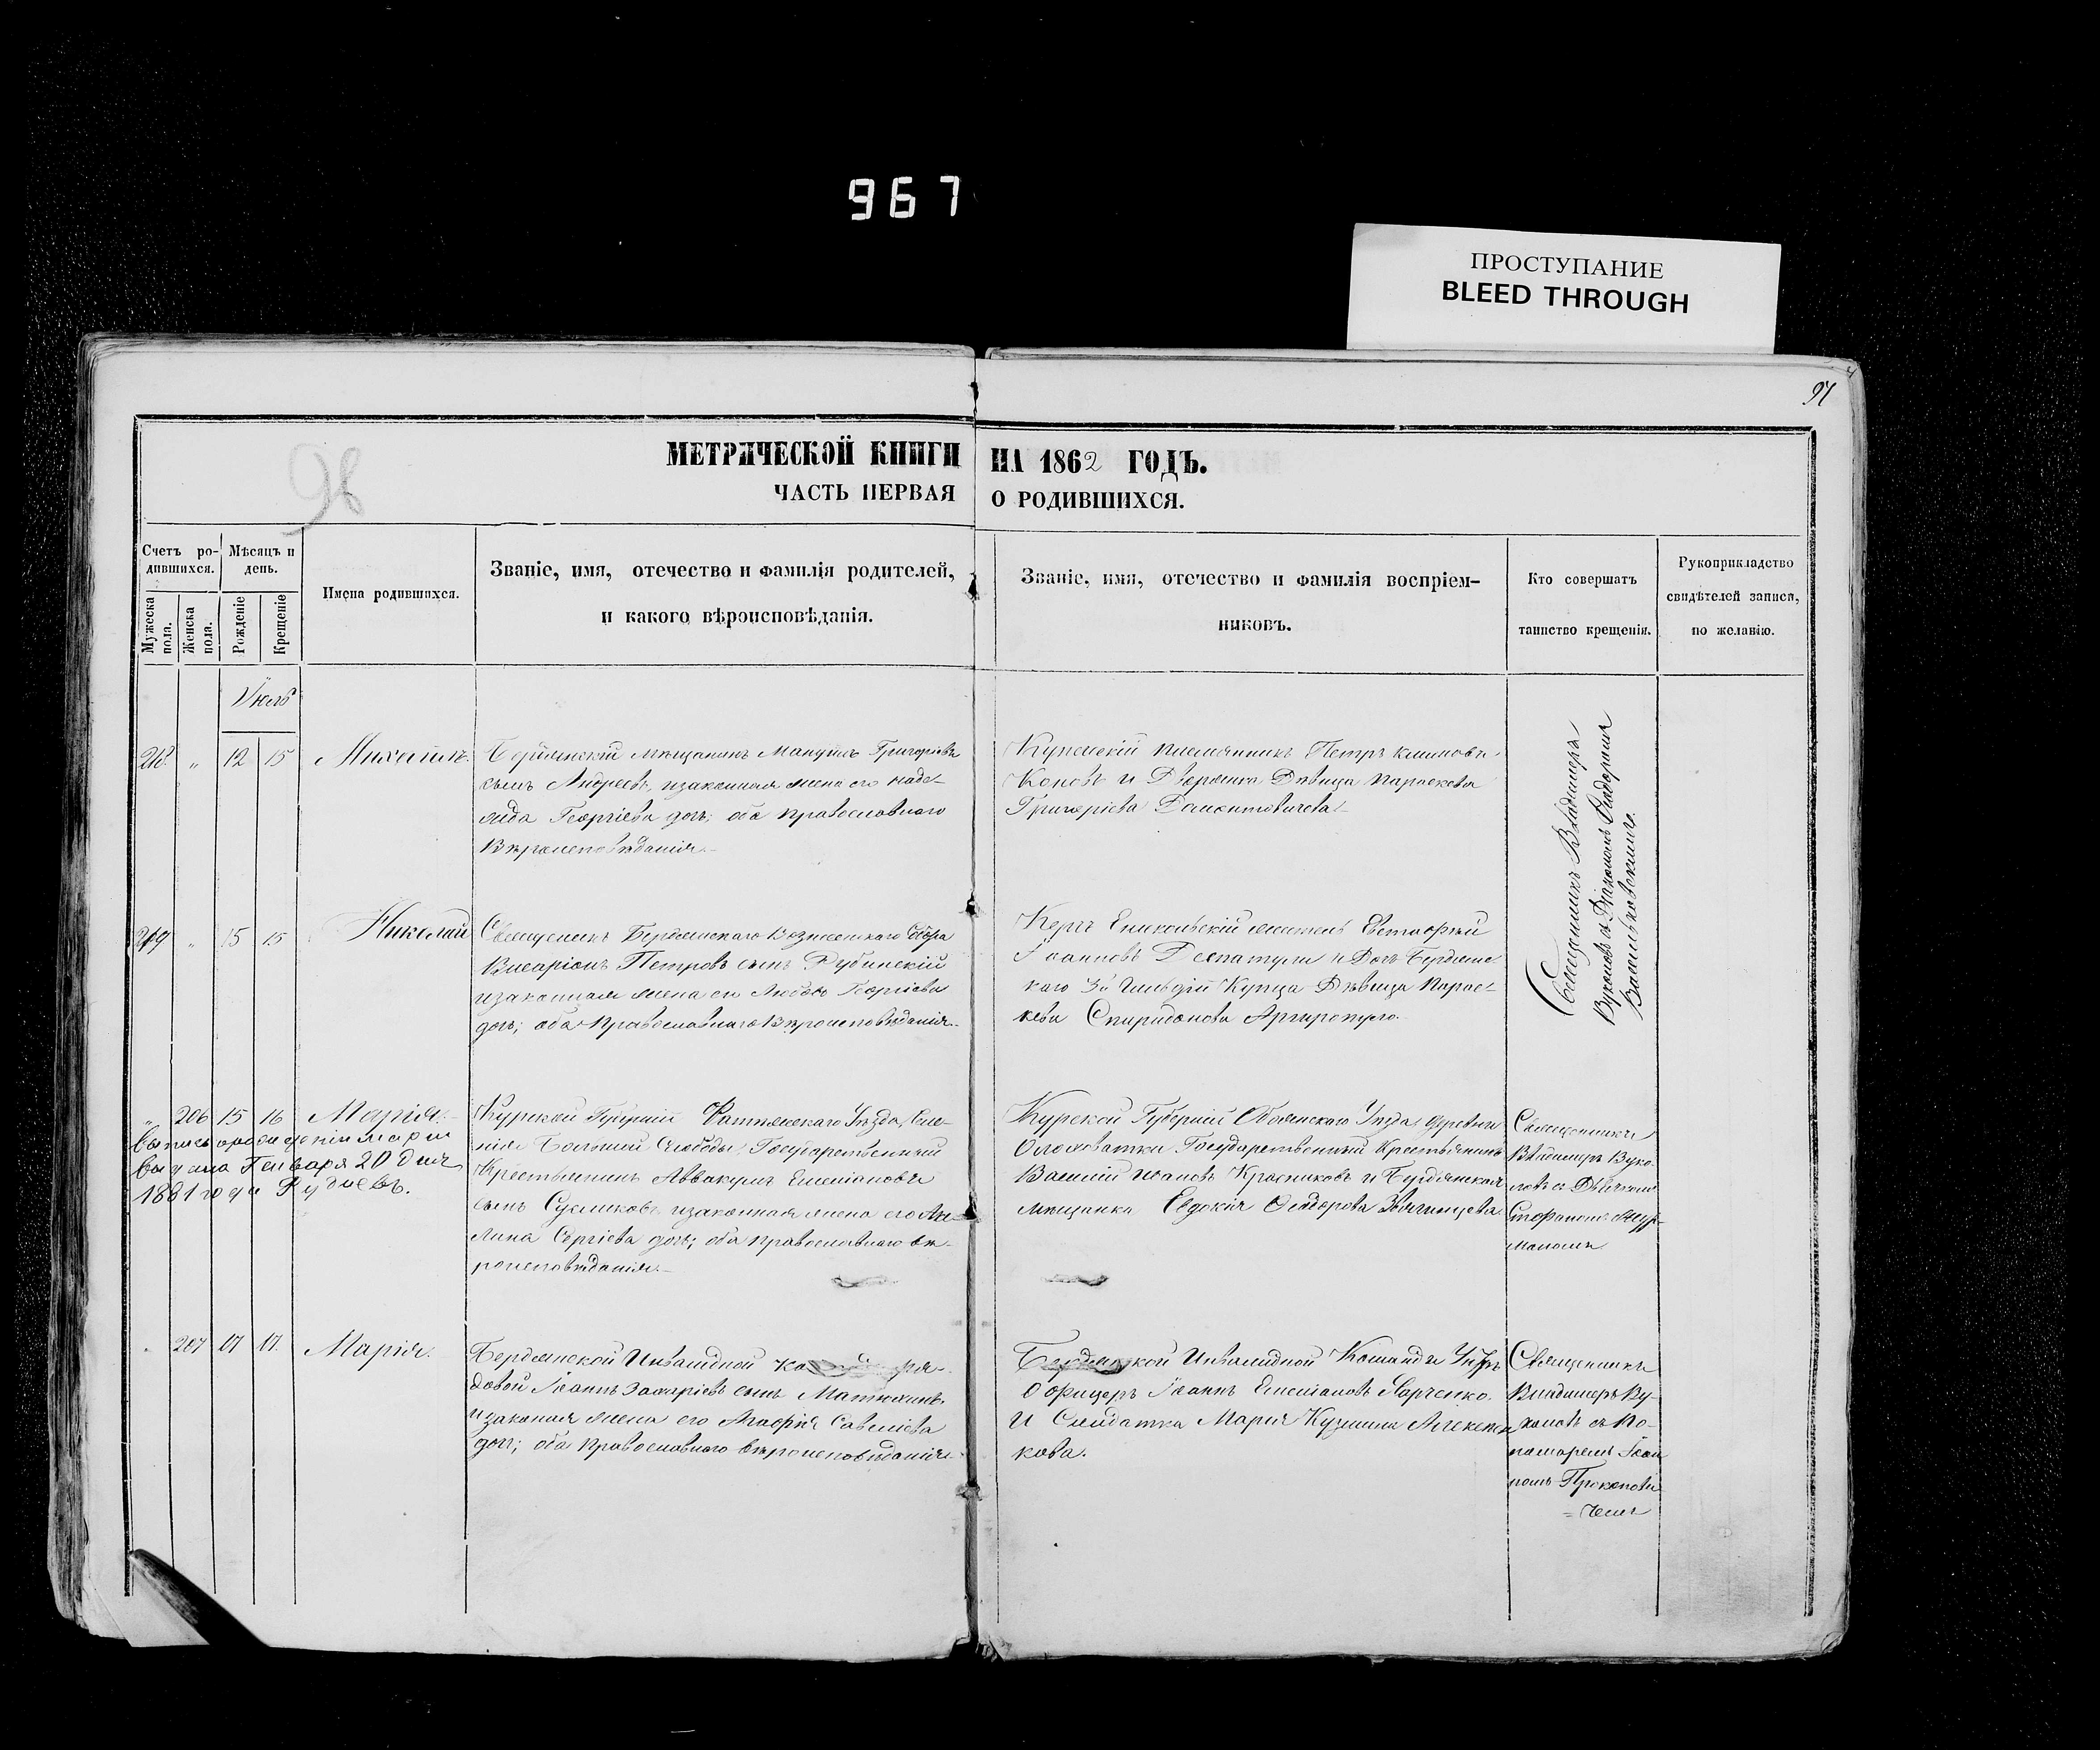 967
ПРОСТУПАНИЕ
BLEED THROUGH
97
98
МЕТРИЧЕСКОЙ КНИГИ НА 1862 ГОДЪ.
ЧАСТЬ ПЕРВАЯ О РОДИВШИХСЯ.
Счетъ ро-
дившихся.
Мужеска пола.
Женска пола.
Мѣсяцъ и
день.
Рожденіе
Крещеніе
Имена родившихся.
Званіе, имя, отечество и фамилія родителей,
и какого вѣроисповѣданія.
Званіе, имя, отечество и фамилія воспріем-
никовъ.
Кто совершатъ
таинство крещенія.
Рукоприкладство
свидѣтелей записи,
по желанію.
Іюль
218. " 12 15 Михаилъ.
Бердянскій мѣщанинъ Григоріевъ
сынъ Андреевъ, и законная жена его Наде-
жда Георгіева дочь; оба православнаго
вѣроисповѣданія.
Петръ
и Дворянка Дѣвица Параскева
Григоріева
Священникъ Владимеръ
Вуколовъ съ Діакономъ
219 " 15 15 Николай
Священникъ Бердянскаго Вознесенскаго Собора
Висаріонъ Петровъ сынъ Рубинскій
и законная жена его Любовь Георгіева
дочь; оба Православнаго Вѣроисповѣданія.
Керчь Еникольскій житель Евстафій
Іоанновъ и Дочь Бердянс
каго 3й Гильдіи Купца Дѣвица Парас-
кева Спиридонова Аргиропуло.
" 206 15 16 Марія.
Выпись о рожденіи Маріи
выдана Генваря 20 дня
1881 года
Курской Губерніи Уѣзда,
Слободы, Государственный
Крестьянинъ Аввакумъ Емеліановъ
сынъ Сусликовъ, и законная жена его Аку-
лина Сергіева дочь; оба православнаго вѣ-
роисповѣданія.
Курской Губерніи Обоянскаго Уѣзда деревни
Государственный Крестьянинъ
Василій Ивановъ Красниковъ и Бердянская
мѣщанка Евдокія Федорова Звягинцева.
Священникъ
Владимеръ Вуко-
ловъ съ Дьячкомъ
Стефаномъ
207 17 17. Марія.
Бердянской Инвалидной ря-
довой Іоаннъ Захаріевъ сынъ Матюхинъ,
и законная жена его Агафія Савеліева
дочь; оба Православнаго вѣроисповѣданія.
Бердянской Инвалидной Команды Унтеръ
Офицеръ Іоаннъ Емеліановъ Харченко.
и Солдатка Марія Кузмина
кова.
Священникъ
Владимеръ Ву-
коловъ съ По-
номаремъ Іоан
номъ Прокопови
= чемъ